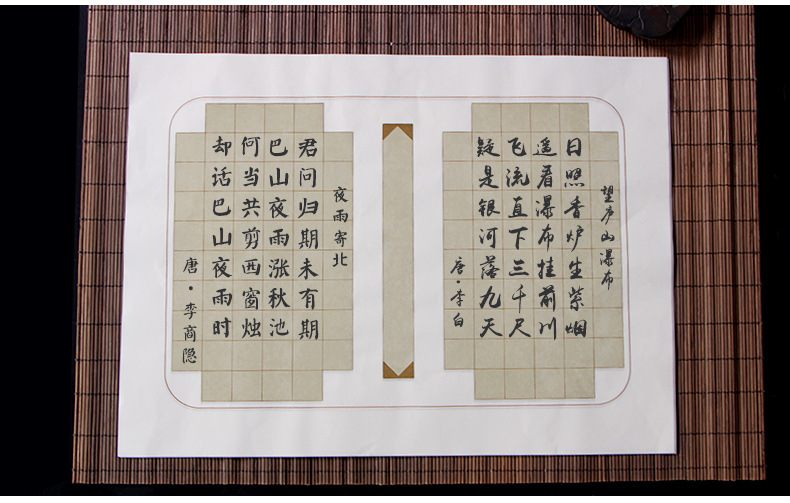 望庐山瀑布
日照香炉生紫烟
遥看瀑布挂前川
飞流直下三千尺
疑是银河落九天
唐·李白
夜雨寄北
君问归期未有期
巴山夜雨涨秋池
何当共剪西窗烛
却话巴山夜雨时
唐·李商隐